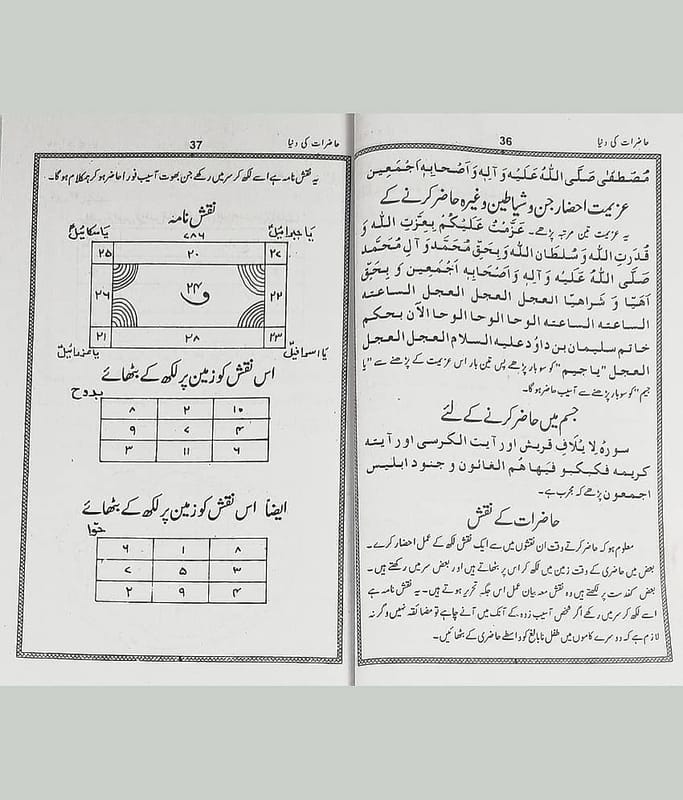 حاضرات کی دنیا 36
مُصْطَفٰی صَلَّی اللّٰہُ عَلَیْہِ وَ اٰلِہٖ وَ اَصْحَابِہٖ اَجْمَعِیْن
عزیمت احضار، جن و شیاطین وغیرہ حاضر کرنے کے
یہ عزیمت تین مرتبہ پڑھے۔ عَزَمْتُ عَلَیْکُمْ بِعِزَّتِ اللّٰہ وَ
قُدرَتِ اللّٰہ وَ سُلطَانِ اللّٰہ وَ بِحَقِّ مُحَمَّد وَ آلِ مُحَمَّد
صَلَّی اللّٰہُ عَلَیْہِ وَ اٰلِہٖ وَ اَصْحَابِہٖ اَجْمَعِیْن وَ بِحَقِّ
اَھَیًا وَ شَرَاھیًا العجل العجل العجل الساعتہ
الساعتہ الساعتہ الوحا الوحا الوحا الآن بحکم
خاتم سلیمان بن داؤد علیہ السلام العجل العجل
العجل "یا جیم" کو سو بار پڑھے پس تین بار اس عزیمت کے پڑھنے سے "یا
جیم" کو سو بار پڑھنے سے آسیب حاضر ہوگا۔
جسم میں حاضر کرنے کے لئے
سورہ لِا یُلافِ قریش اور آیت الکرسی اور آیتہ
کریمہ فکبکبو فیھا ھُم الغائون و جنود ابلیس
اجمعون پڑھے کہ مجرب ہے۔
حاضرات کے نقش
معلوم ہو کہ حاضر کرتے وقت ان نقشوں میں سے ایک نقش لکھ کے عمل احضار کرے۔
بعض میں حاضری کے وقت زمین میں لکھ کر اس پر بٹھاتے ہیں اور بعض سر میں رکھتے ہیں۔
بعض کف دست پر لکھتے ہیں وہ نقش معہ بیان عمل اس جگہ تحریر ہوتے ہیں۔ یہ نقش نامہ ہے
اسے لکھ کر سر میں رکھے اگر شخص آسیب زدہ کے آنگ میں آنے چاہے تو مضائقہ نہیں وگرنہ
لازم ہے کہ دوسرے کاموں میں طفل نابالغ کو واسطے حاضری کے بٹھائیں۔
حاضرات کی دنیا 37
یہ نقش نامہ ہے اسے لکھ کر سر میں رکھے جن بھوت آسیب فوراً حاضر ہو کر ہمکلام ہوگا۔
نقش نامہ
یا جبرائیلؑ ۷۸۶ یا میکائیلؑ
۲۷ ۲۰ ۲۵
۲۲ ۲۴ ۲۶
ف
۲۳ ۲۸ ۲۱
یا اسرافیلؑ یا عزرائیلؑ
اس نقش کو زمین پر لکھ کے بٹھائے
بدوح
۱۰ ۲ ۸
۴ ۷ ۹
۶ ۱۱ ۳
ایضاً اس نقش کو زمین پر لکھ کے بٹھائے
حوّا
۸ ۱ ۶
۳ ۵ ۷
۴ ۹ ۲